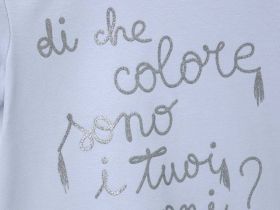 di che
colore
sono
i tuoi